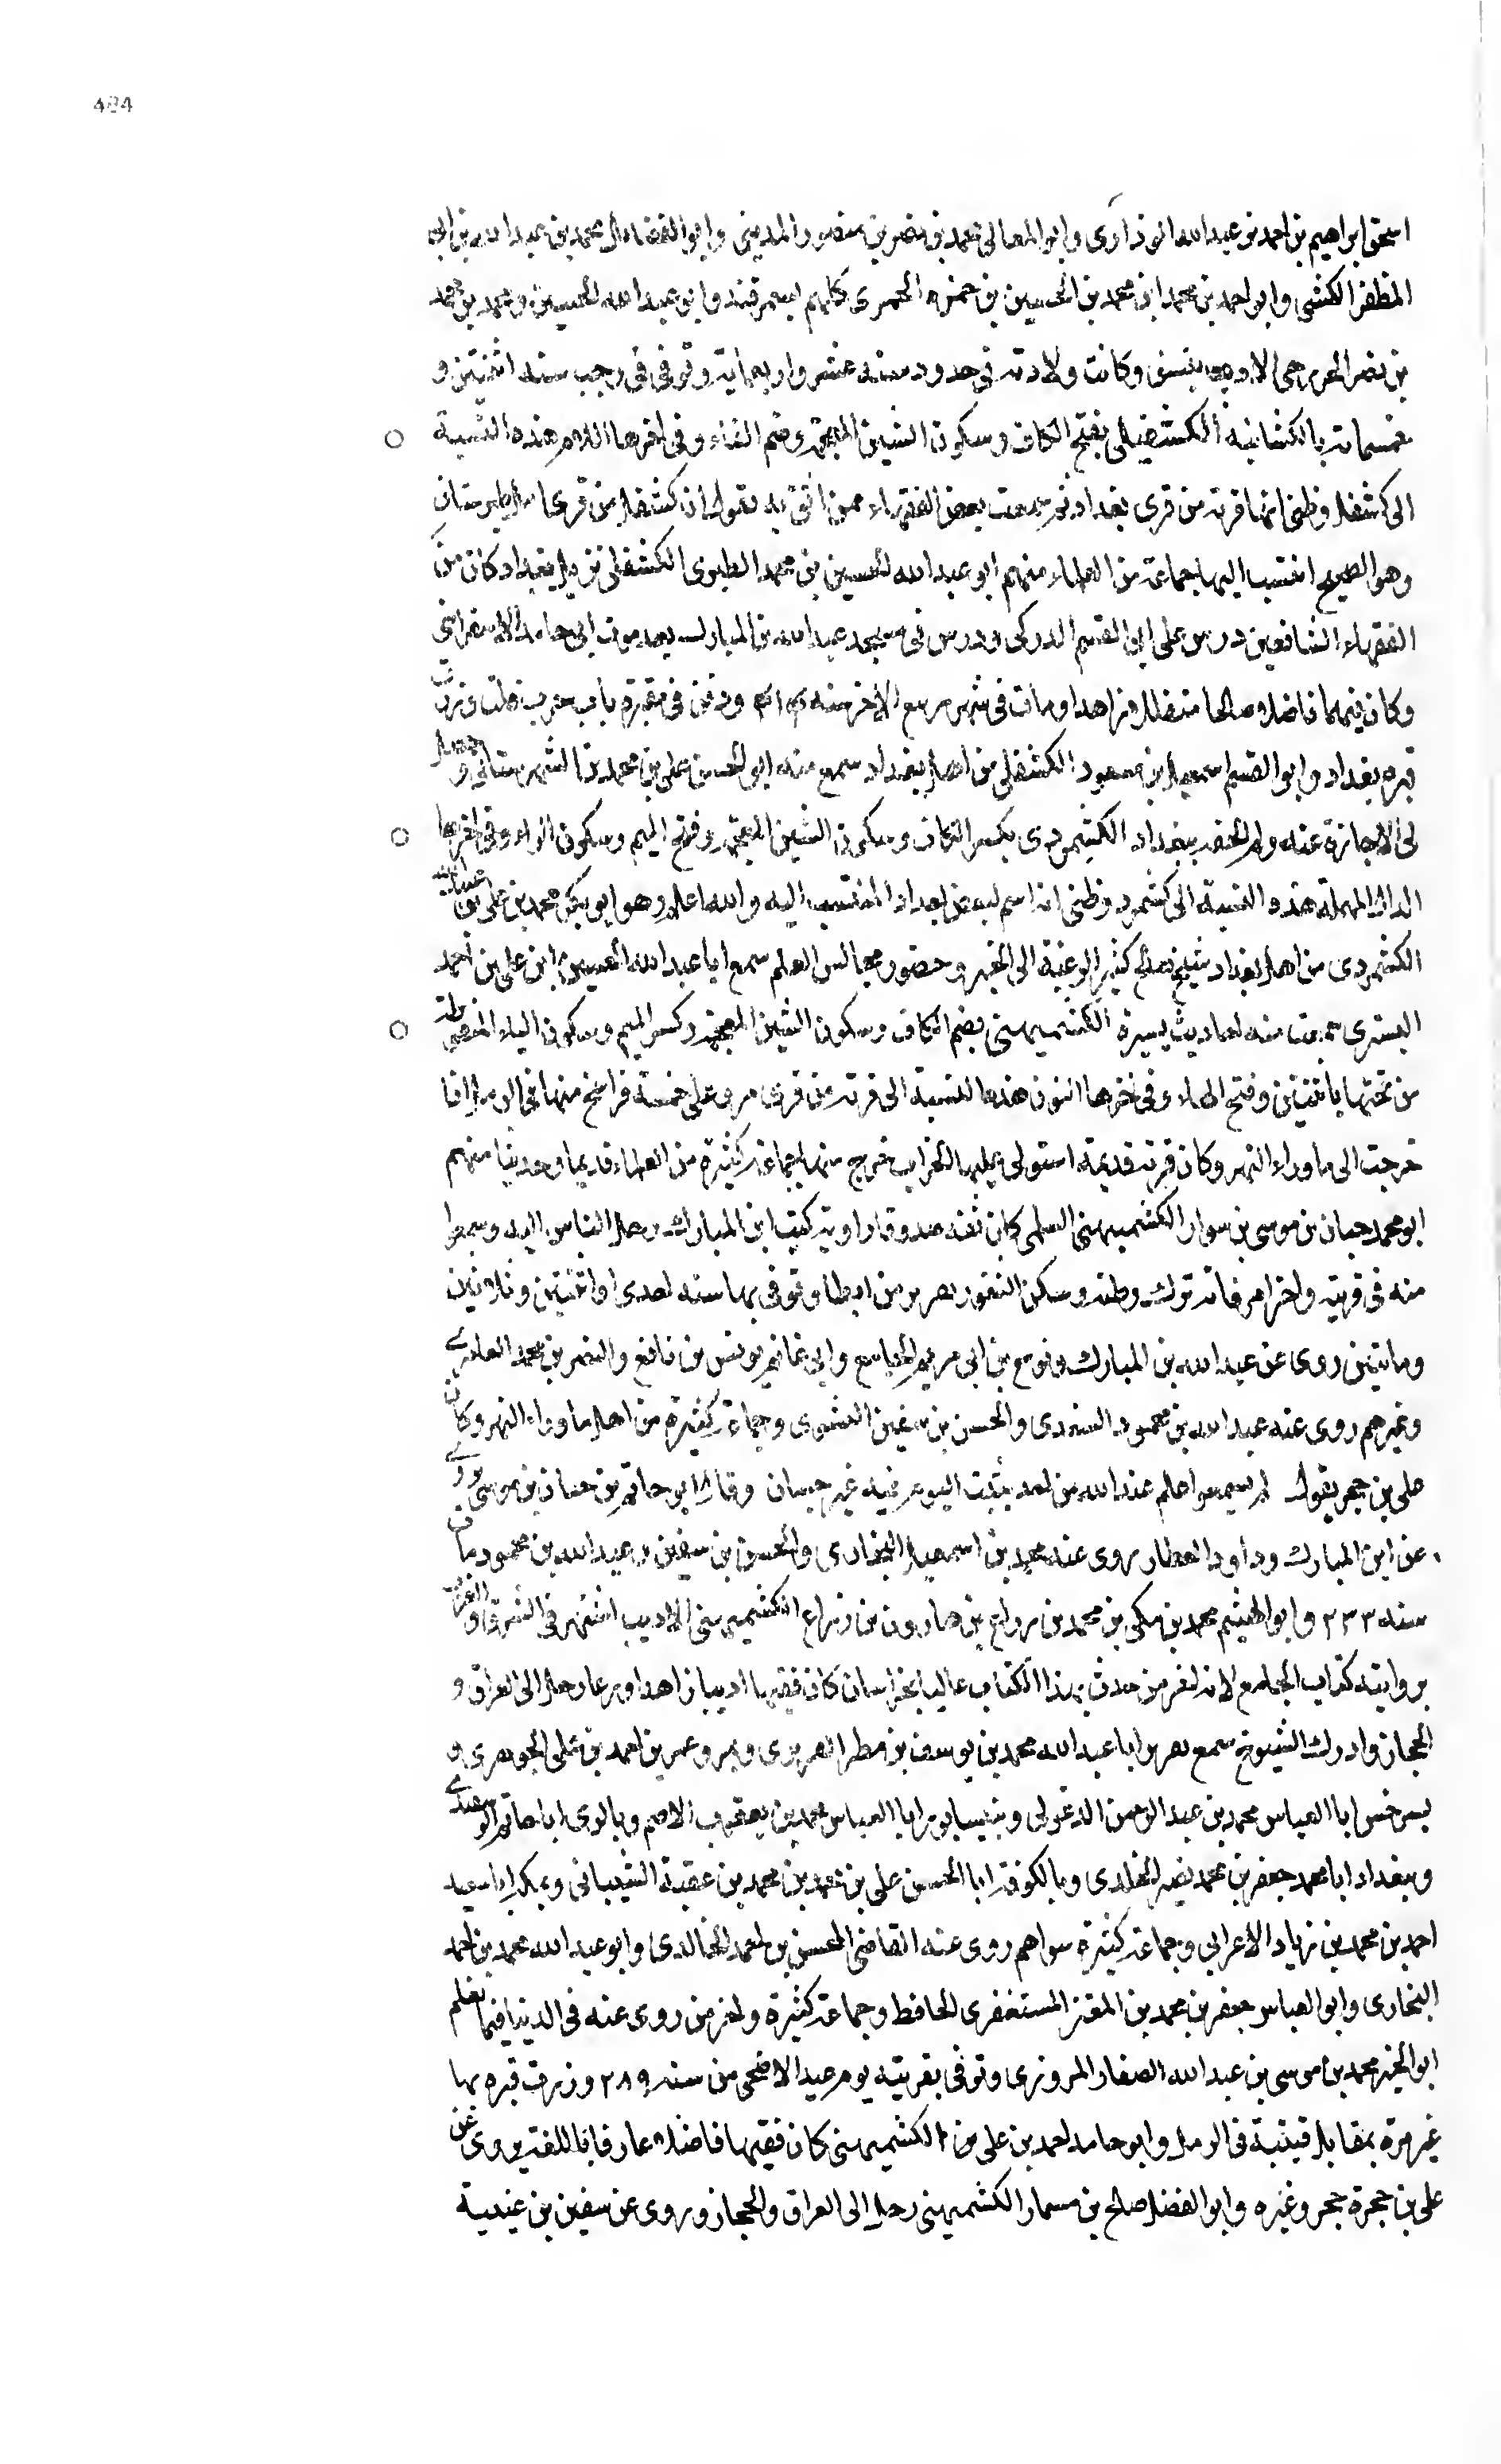 484
اسحق ابراهيم بن احمد بن عبد الله النوذآري وابو المعالي محمد بن نصر بن منصور المديني وابو الفضايل محمد بن عبد الله بن ابي
المظفر الكشي وابو احمد بن محمد ابن محمد بن الحسين بن حمزه الحمرى كلهم بسمرقند وابو عبد الله الحسين بن محمد بن محمد
بن نصر بنسف وكانت ولادته في حدود سنه عشر واربعمايه وتوفي في رجب سنه اثنتين و
بالكشانيه الكشفلي بفتح الكاف وسكون الشين المعجمه وضم الفاء وفي اخرها اللام هذه النسبة
الى كشفل وظني انها قريه من قرى بغداد ثم سمعت بعض الفقهاء ممن اثق به يقول ان كشفل من قرى امل طبرستان
وهو الصحيح انتسب اليها جماعة من العلماء منهم ابو عبد الله الحسين بن محمد الطبري الكشفلي نزيل بغداد كان من
الفقهاء الشافعيين درس على ابي القسم الدركي ودرس في مسجد عبد الله بن المبارك بعد موت ابي حامد الاسفرايني
وكان فهما فاضلا صالحا متقللا زاهدا ومات في شهر ربيع الاخر سنه ودفن في مقبرة باب حرب قلت وزرت
قبره ببغداد وابو القسم اسمعيل بن مسعود الكشفلي من اهل بغداد سمع منه ابو الحسن علي بن محمد بن الشهرستاني وحصل
لي الاجازة عنه ولم الحقه ببغداد الكشمردي بكسر الكاف وسكون الشين المعجمه وفتح الميم وسكون الراء وفي اخرها
الدال المهملة هذه النسبة الى كشمرد وظني انه اسم لبعض اجداد المنتسب اليه والله اعلم وهو ابو بكر محمد بن علي بن عبد الله
الكشمردي من اهل بغداد شيخ صالح كثير الرغبة الى الخير وحضور مجالس العلم سمع ابا عبد الله الحسين ابن علي بن احمد
البسرى سمعت منه احاديث يسيرة الكشميهني بضم الكاف وسكون الشين المعجمه وكسر الميم وسكون الياء المنقوطة
من تحتها باثنتين وفتح الهاء وفي اخرها النون هذه النسبة الى قريه من قرى مرو على خمسة فراسخ منها في الرمل اذا
خرجت الى ما وراء النهر وكان قرية قديمة استولى عليها الخراب خرج منها جماعة كثيرة من العلماء قديما وحديثا منهم
ابو محمد حبان بن موسى بن سوار الكشميهني السلمي كان ثقه صدوقا راوية كتب ابن المبارك رحل الناس اليه وسمعوا
منه في قريته واخر امر فانه ترك وطنه وسكن الثغور توفي بها سنه احدى او اثنتين وثلاثين
ومايتين روى عن عبد الله بن المبارك ونوح بن ابي مريم الجامع وابي غانم يونس بن نافع والنضر بن محمد العامري
وغيرهم روى عنه عبد الله بن محمود السعدى والحسن بن سفين النسوى وجماعة كثيرة من اهل ما وراء النهر وكان
علي بن حجر يقول عند الله من احد بثلث اليوم فيه غير حبان وقال ابو حاتم بن حبان بن موسى يروي
عن ابن المبارك وداود العطار روى عنه محمد بن اسمعيل البخاري والحسن بن سفين وعبد الله بن محمود مات
سنه ٢٣٣ وابو الهيثم محمد بن مكي بن محمد بن زراع بن هارون بن زراع الكشميهني الاديب اشتهر في الشرق والغرب
بروايته كتاب الجامع لانه اخر من حدث بهذا الكتاب عاليا بخراسان كان فقيها اديبا زاهدا ورعا رحل الى العراق و
الحجاز وادرك الشيوخ سمع بفربر ابا عبد الله محمد بن يوسف بن مطر الفربري وبمرو عمر بن احمد بن علي الجوهري و
بسرخس ابا العباس محمد بن عبد الرحمن الدغولي وبنيسابور ابا العباس محمد بن يعقوب الاصم وبالري ابا حاتم الوسقندي
وببغداد ابا محمد جعفر بن محمد نصر الخلدى وبالكوفة ابا الحسن علي بن محمد بن محمد بن عقبة الشيباني وبمكة ابا سعيد
احمد بن محمد بن زياد الاعرابي وجماعة كثيرة سواهم روى عنه القاضي المحسن بن احمد الخالدى وابو عبد الله محمد بن احمد
البخاري وابو العباس جعفر بن محمد بن المعتز المستغفرى الحافظ وجماعة كثيرة واخر من روى عنه في الدنيا فيما يعلم
ابو الخير محمد بن موسى بن عبد الله الصفار المروزي وتوفي بقريته يوم عيد الاضحى من سنه ٢٨٩ وزرت قبره بها
غير مرة بمقابل قينبة في الرمل وابو حامد احمد بن علي من الكشميهني كان فقيها فاضلا عارفا باللغه يروى عن
علي بن حجرة حجر وغيره وابو الفضل صالح بن مسمار الكشميهني رحل الى العراق والحجاز وروى عن سفين بن عيينة